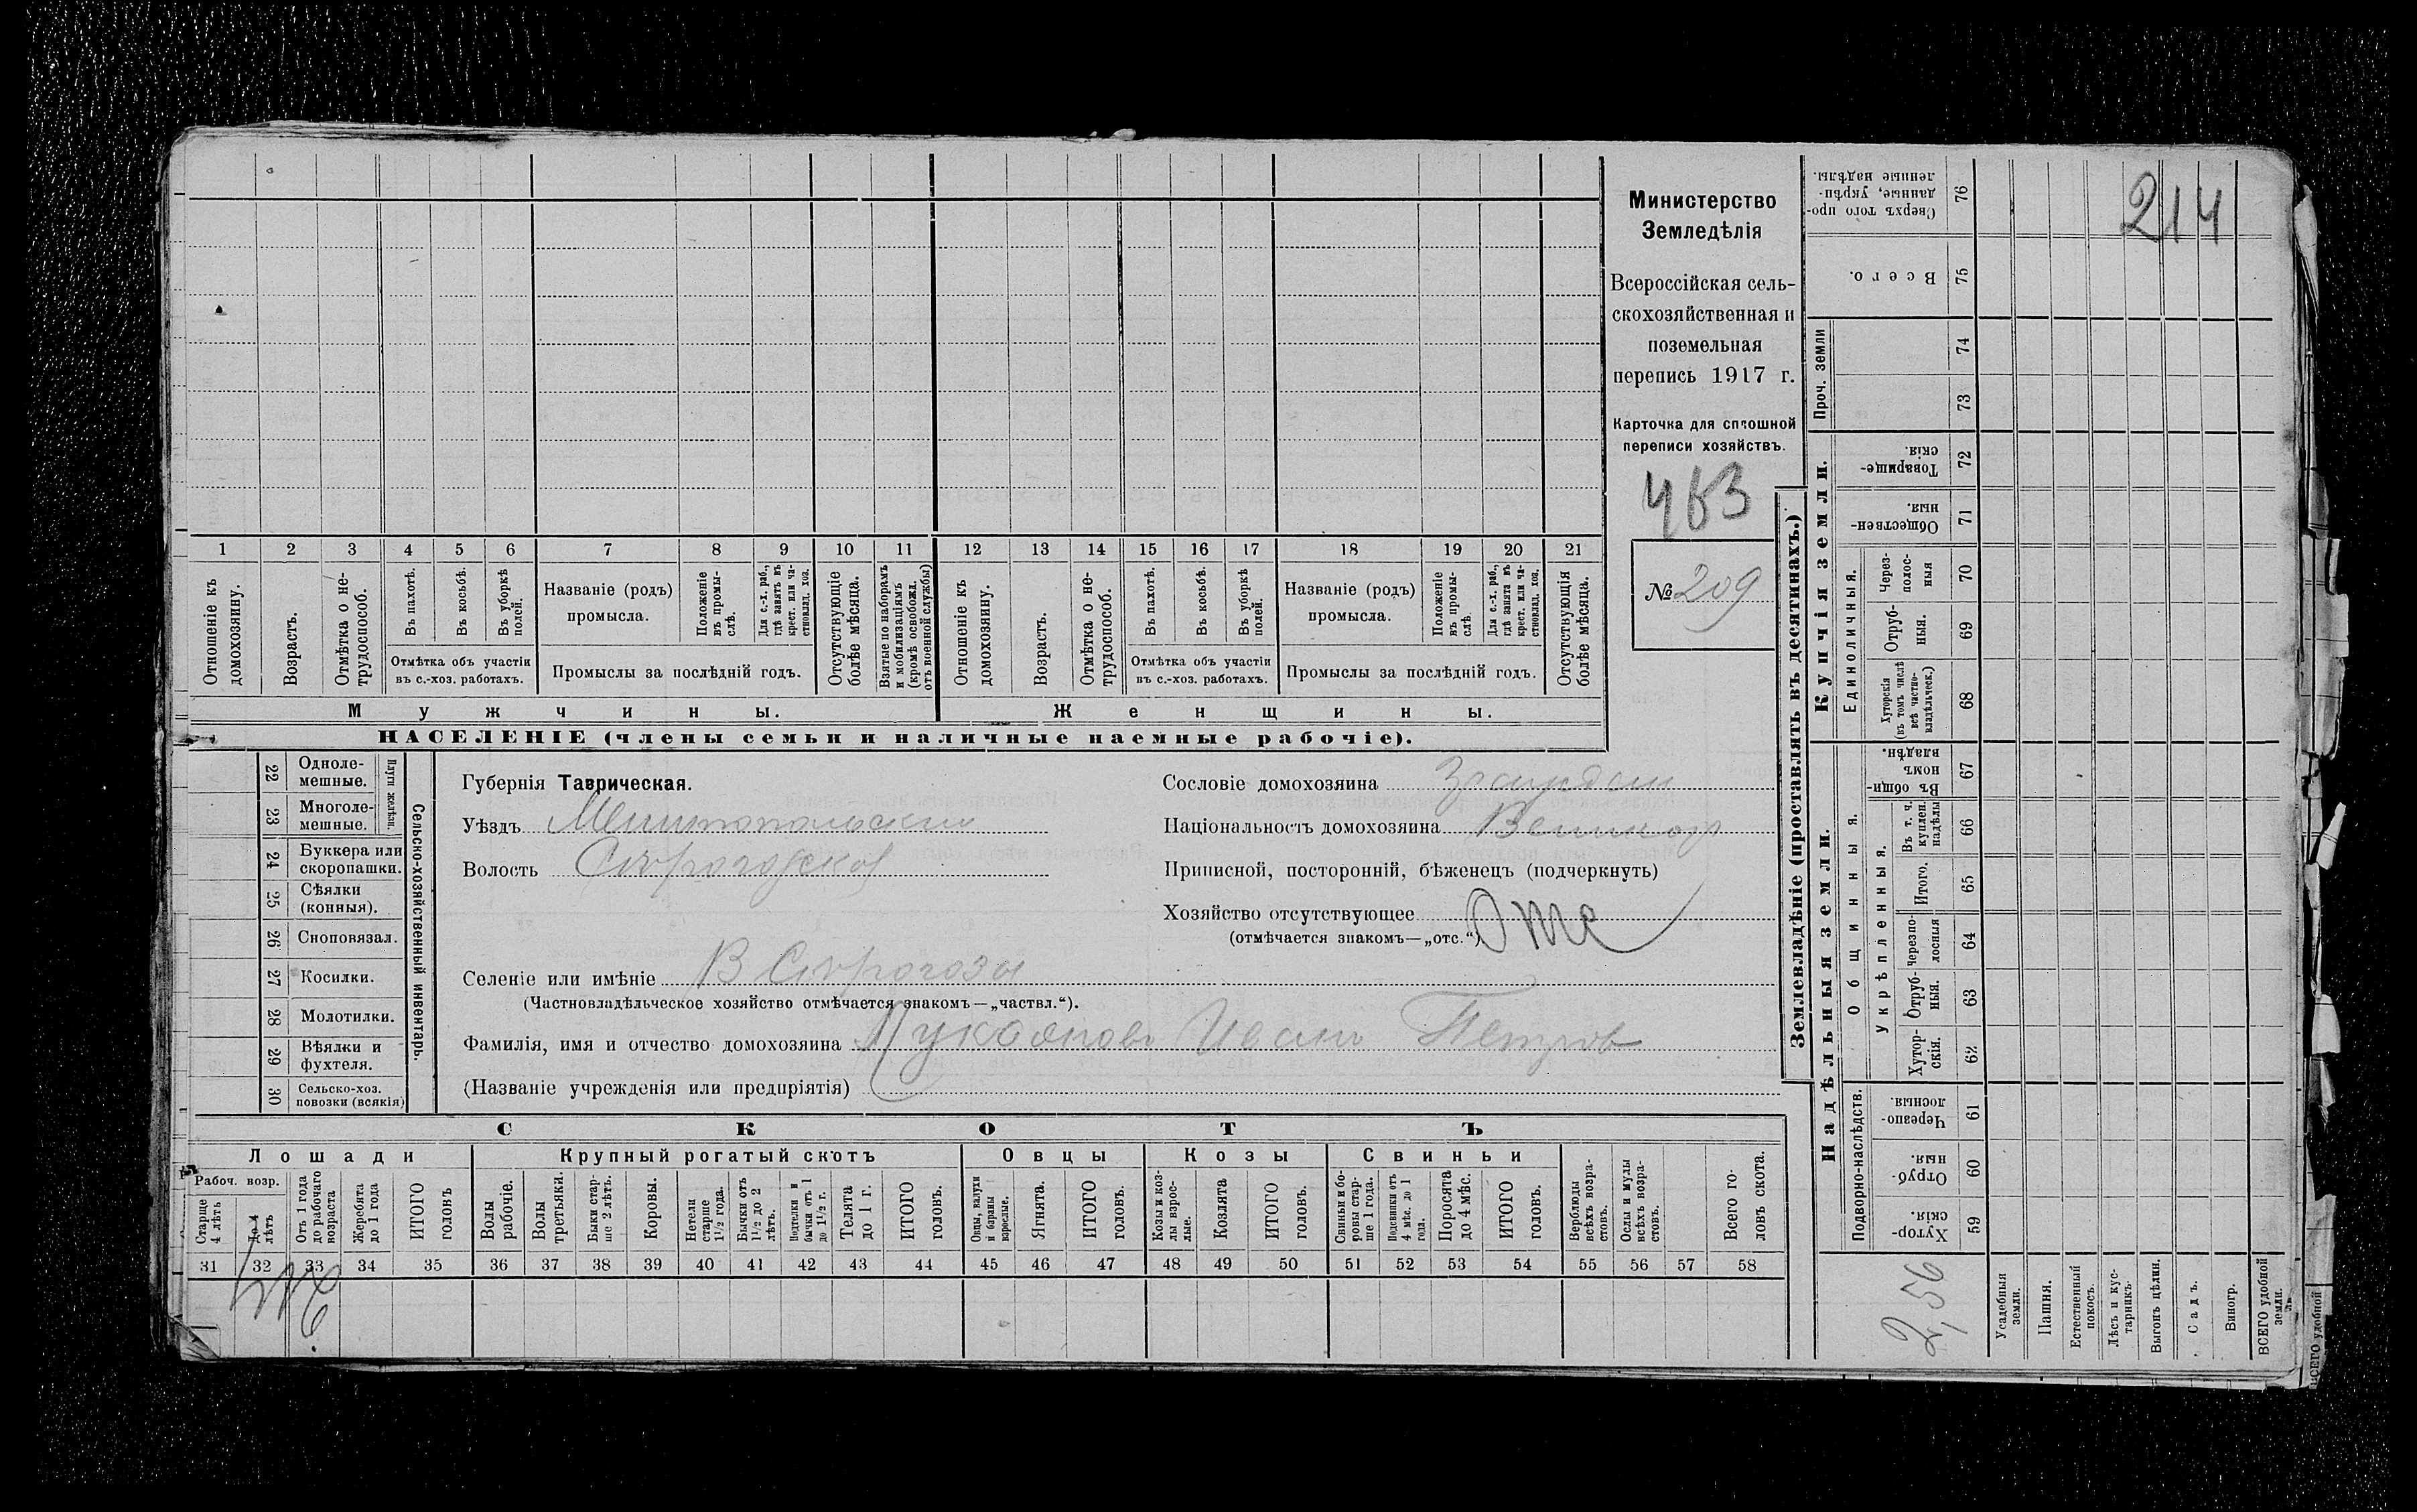 214
Министерство
Земледѣлія
Всероссійская сель-
скохозяйственная и
поземельная
перепись 1917 г.
Карточка для сплошной
переписи хозяйствъ.
№ 209
1 2 3 4 5 6 7 8 9 10 11 12 13 14 15 16 17 18 19 20 21
Отношеніе къ домохозяину.
Возрастъ.
Отмѣтка о не-
трудоспособ.
Въ пахотѣ.
Въ косьбѣ.
Въ уборкѣ полей.
Отмѣтка объ участіи
въ с.-хоз. работахъ.
Названіе (родъ)
промысла.
Положеніе
въ промы-
слѣ.
Для с.-х. раб.,
гдѣ занятъ въ
крест. или ча-
стновлад. хоз.
Промыслы за послѣдній годъ.
Отсутствующіе
болѣе мѣсяца.
Взятые по наборамъ
и мобилизаціямъ
(кромѣ освобожд.
отъ военной службы)
Отношеніе къ
домохозяину.
Возрастъ.
Отмѣтка о не-
трудоспособ.
Въ пахотѣ.
Въ косьбѣ.
Въ уборкѣ
полей.
Отмѣтка объ участіи
въ с.-хоз. работахъ.
Названіе (родъ)
промысла.
Положеніе
въ промы-
слѣ
Для с.-х. раб.,
гдѣ занята въ
крест. или ча-
стновлад. хоз.
Промыслы за послѣдній годъ.
Отсутствующія
болѣе мѣсяца.
Мужчины.
Женщины.
НАСЕЛЕНІЕ (члены семьи и наличные наемные рабочіе).
22 Одноле-
мешные.
23 Многоле-
мешные.
Плуги желѣзн.
24 Буккера или
скоропашки.
25 Сѣялки
(конныя).
26 Сноповязал.
27 Косилки.
28 Молотилки.
29 Вѣялки и
фухтеля.
30 Сельско-хоз.
повозки (всякія)
Сельско-хозяйственный инвентарь.
Губернія Таврическая.
Уѣздъ Мелитопольский
Волость
Селеніе или имѣніе
(Частновладѣльческое хозяйство отмѣчается знакомъ—„частвл.“).
Фамилія, имя и отчество домохозяина Иванъ Петров
(Названіе учрежденія или предпріятія)
Сословіе домохозяина
Національность домохозяина Великор
Приписной, посторонній, бѣженецъ (подчеркнуть)
Хозяйство отсутствующее Отс
(отмѣчается знакомъ—„отс.“)
СКОТЪ
Лошади
Крупный рогатый скотъ
Овцы
Козы
Свиньи
Рабоч. возр.
Старше
4 лѣтъ
До 4
лѣтъ
Отъ 1 года
до рабочаго
возраста
Жеребята
до 1 года
ИТОГО
головъ
Волы
рабочіе.
Волы
третьяки.
Быки стар-
ше 2 лѣтъ.
Коровы.
Нетели
старше
1½ года.
Бычки отъ
1½ до 2
лѣтъ.
Подтелки и
бычки отъ 1
до 1½ г.
Телята
до 1 г.
ИТОГО
головъ.
Овцы, валухи
и бараны
взрослые.
Ягнята.
ИТОГО
головъ.
Козы и коз-
лы взрос-
лые.
Козлята
ИТОГО
головъ.
Свиньи и бо-
ровы стар-
ше 1 года.
Подсвинки отъ
4 мѣс. до 1
года.
Поросята
до 4 мѣс.
ИТОГО
головъ.
Верблюды
всѣхъ возра-
стовъ.
Ослы и мулы
всѣхъ возра-
стовъ.
Всего го-
ловъ скота.
31 32 33 34 35 36 37 38 39 40 41 42 43 44 45 46 47 48 49 50 51 52 53 54 55 56 57 58
Землевладѣніе (проставлять въ десятинахъ.)
Купчія земли.
Надѣльныя земли.
Проч. земли
Единоличныя.
Общинныя.
Укрѣпленныя.
Подворно-наслѣдств.
Сверхъ того про-
данные, укрѣп-
ленные надѣлы.
76
Всего.
75
74
73
Товарище-
скія.
72
Обществен-
ныя.
71
Через-
полос-
ныя
70
Отруб-
ныя.
69
Хуторскія
(въ томъ числѣ
всѣ частно-
владѣльческ.)
68
Въ общин-
номъ
владѣн.
67
Въ т. ч.
куплен.
надѣлы
66
Итого.
65
Черезпо-
лосныя
64
Отруб-
ныя.
63
Хутор-
скія.
62
Черезпо-
лосныя.
61
Отруб-
ныя.
60
Хутор-
скія.
59
2,56
Усадебныя
земли.
Пашня.
Естественный
покосъ.
Лѣсъ и кус-
тарникъ.
Выгонъ цѣлин.
Садъ.
Виногр.
ВСЕГО удобной
земли.
ВСЕГО удобной